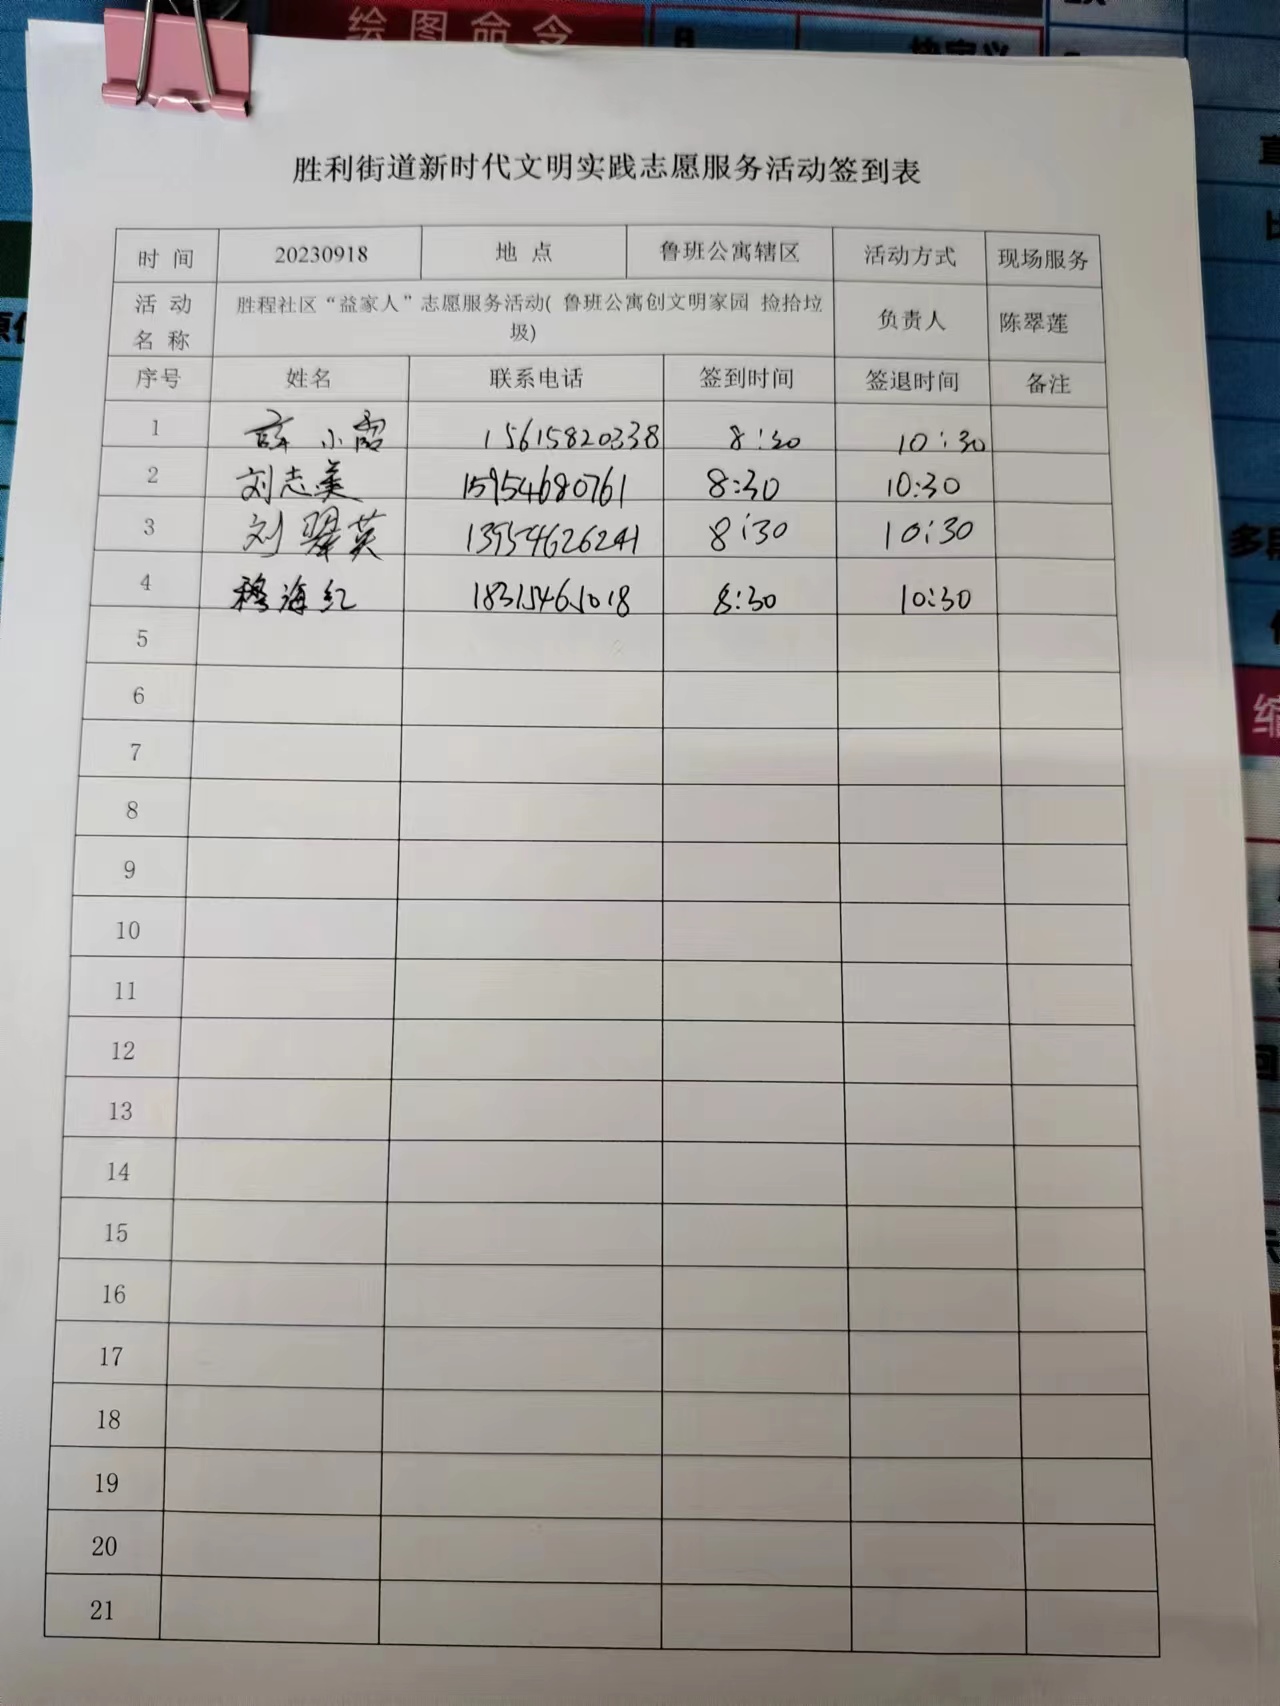 绘图命令
胜利街道新时代文明实践志愿服务活动签到表
时 间 20230918 地 点 鲁班公寓辖区 活动方式 现场服务
活 动 名 称 胜程社区“益家人”志愿服务活动( 鲁班公寓创文明家园 捡拾垃圾) 负责人 陈翠莲
序号 姓名 联系电话 签到时间 签退时间 备注
1 薛小霞 15615820338 8:30 10:30
2 刘志英 15954680761 8:30 10:30
3 刘翠英 13954626241 8:30 10:30
4 穆海红 18315461018 8:30 10:30
5
6
7
8
9
10
11
12
13
14
15
16
17
18
19
20
21